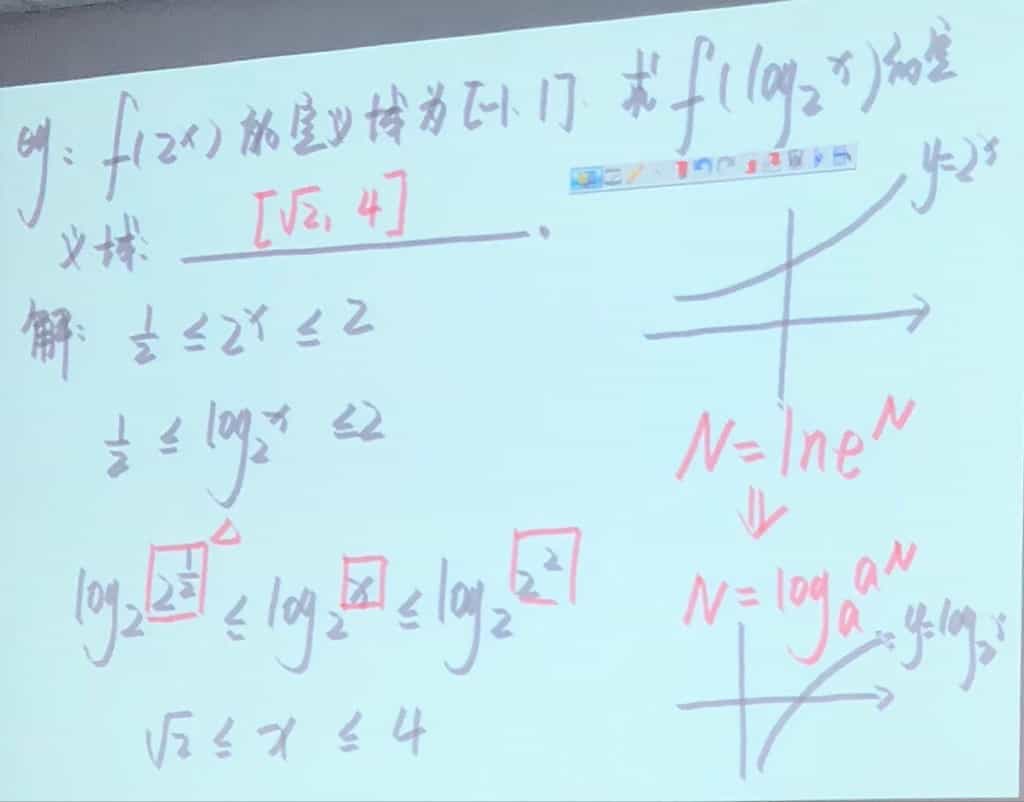 例: f(2^x) 的定义域为[-1, 1]. 求f(log₂x)的定
义域: [√2, 4].
解: 1/2 ≤ 2^x ≤ 2
1/2 ≤ log₂x ≤ 2
log₂2^(1/2) ≤ log₂x ≤ log₂2²
√2 ≤ x ≤ 4
y=2^x
N=lne^N
⇓
N=logₐa^N
y=log₂x